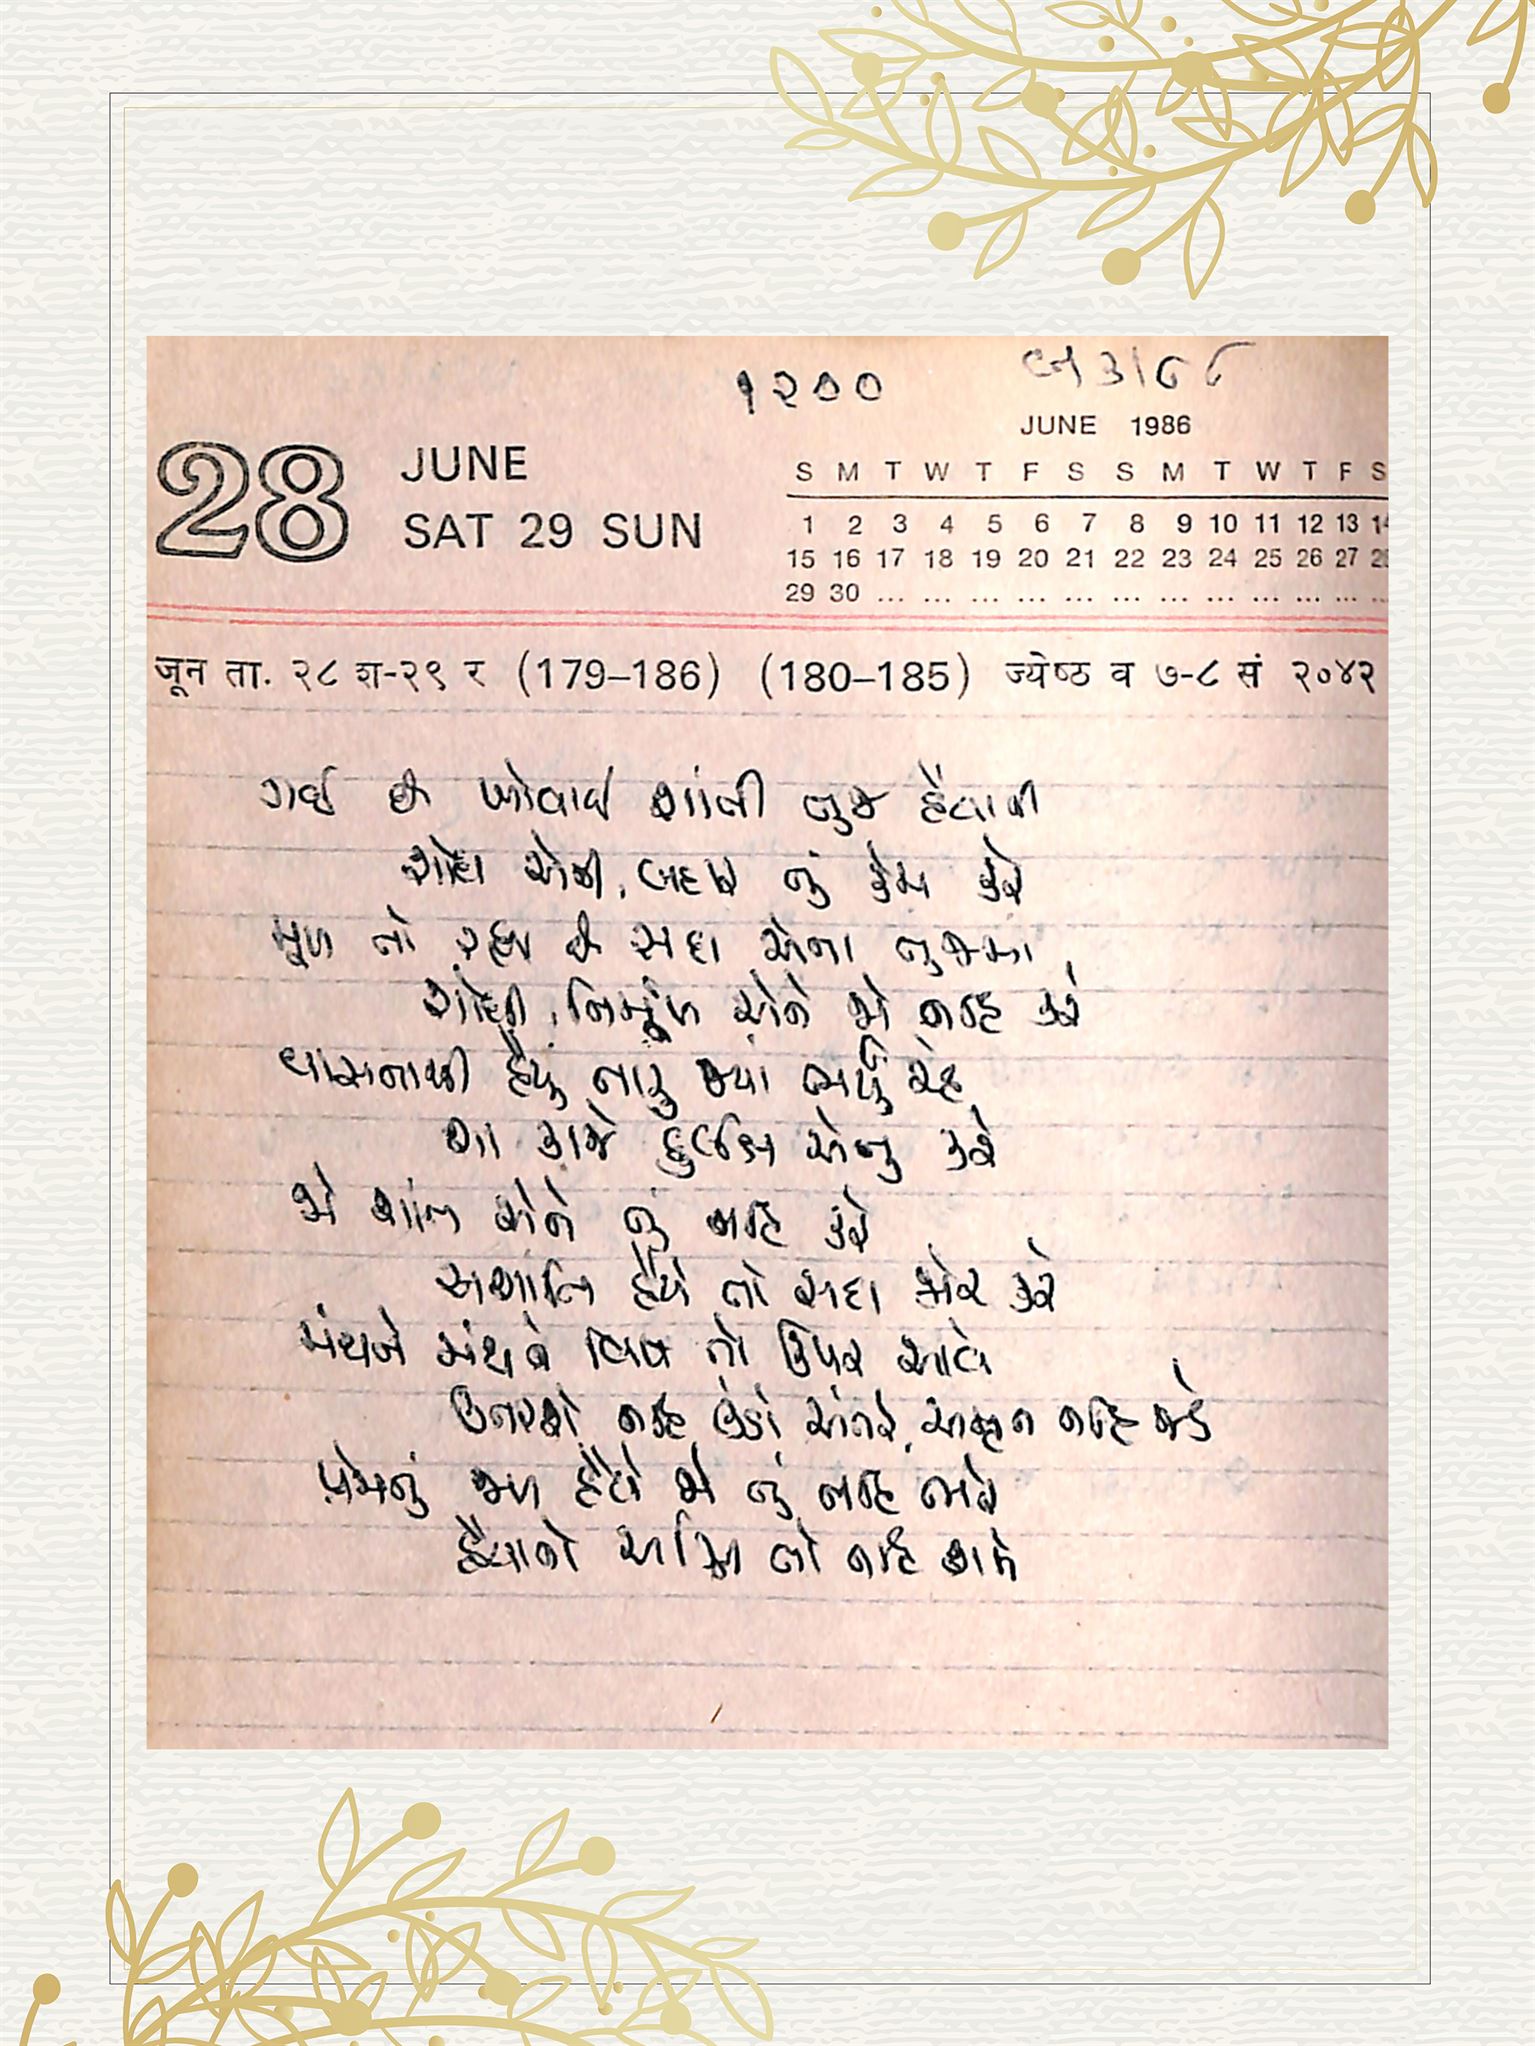 ૧૨૦૦
JUNE 1986
28 JUNE
SAT 29 SUN
S M T W T F S S M T W T F S
1 2 3 4 5 6 7 8 9 10 11 12 13 14
15 16 17 18 19 20 21 22 23 24 25 26 27 28
29 30 ... ... ... ... ... ... ... ... ... ... ... ...
जून ता. २८ श-२९ र (179–186) (180–185) ज्येष्ठ व ७-८ सं २०४२
ગઈ છે ખોવાઈ શાંતી તુજ હૈયાની
શોધ એની, બહાર તું કેમ કરે
મૂળ તો રહ્યા છે સદા એના તુજમાં
શોધી, નિર્મૂળ એને જો નહિ કરે
વાસનાથી હૈયું તારું જ્યાં ભર્યું રહે
ના કાજે દુર્લક્ષ એનુ કરે
જો શાંત એને તું નહિ કરે
અશાંતિ હૈયે તો સદા જોર કરે
મંથને મંથને વિષ તો ઉપર આવે
ઉતરશે નહિ ઉંડો અંતરે, અમૃત નહિ જડે
પ્રેમનું જળ હૈયે જો તું નહિ ભરે
હૈયાનો અગ્નિ તો નહિ શમે